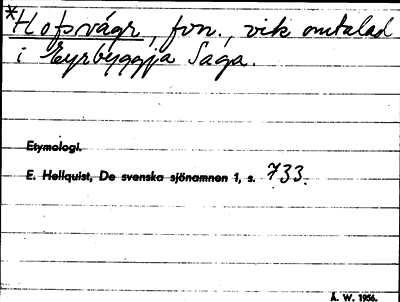 *Hofsvágr, fvn., vik omtalad
i Eyrbyggja Saga.
Etymologi.
E. Hellquist, De svenska sjönamnen 1, s. 733.
Å. W. 1956.